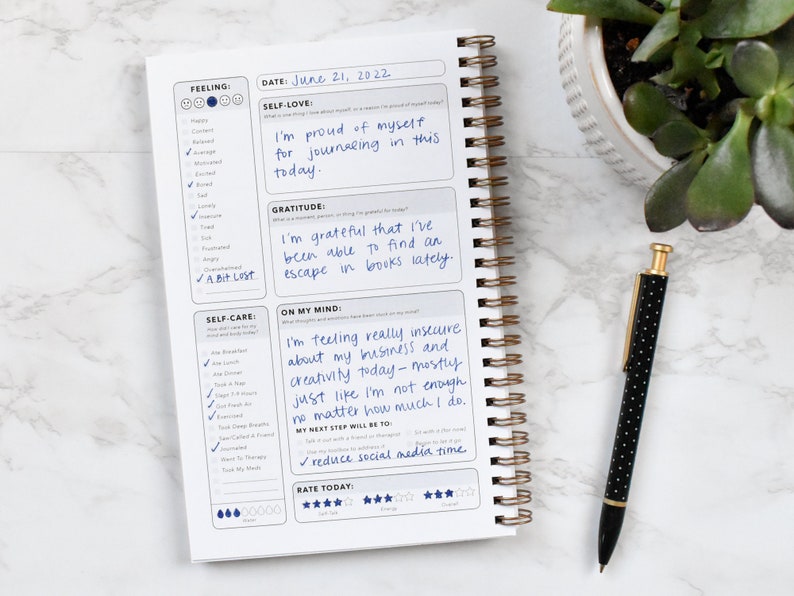 FEELING:
Happy
Content
Relaxed
Average
Motivated
Excited
Bored
Sad
Lonely
Insecure
Tired
Sick
Frustrated
Angry
Overwhelmed
A Bit Lost
SELF-CARE:
How did I care for my
mind and body today?
Ate Breakfast
Ate Lunch
Ate Dinner
Took A Nap
Slept 7-9 Hours
Got Fresh Air
Exercised
Took Deep Breaths
Saw/Called A Friend
Journaled
Went To Therapy
Took My Meds
Water
DATE: June 21, 2022
SELF-LOVE:
What is one thing I love about myself, or a reason I'm proud of myself today?
I'm proud of myself
for journaling in this
today.
GRATITUDE:
What is a moment, person, or thing I'm grateful for today?
I'm grateful that I've
been able to find an
escape in books lately.
ON MY MIND:
What thoughts and emotions have been stuck on my mind?
I'm feeling really insecure
about my business and
creativity today – mostly
just like I'm not enough
no matter how much I do.
MY NEXT STEP WILL BE TO:
Talk it out with a friend or therapist
Sit with it (for now)
Use my toolbox to address it
Begin to let it go
reduce social media time.
RATE TODAY:
Self-Talk
Energy
Overall